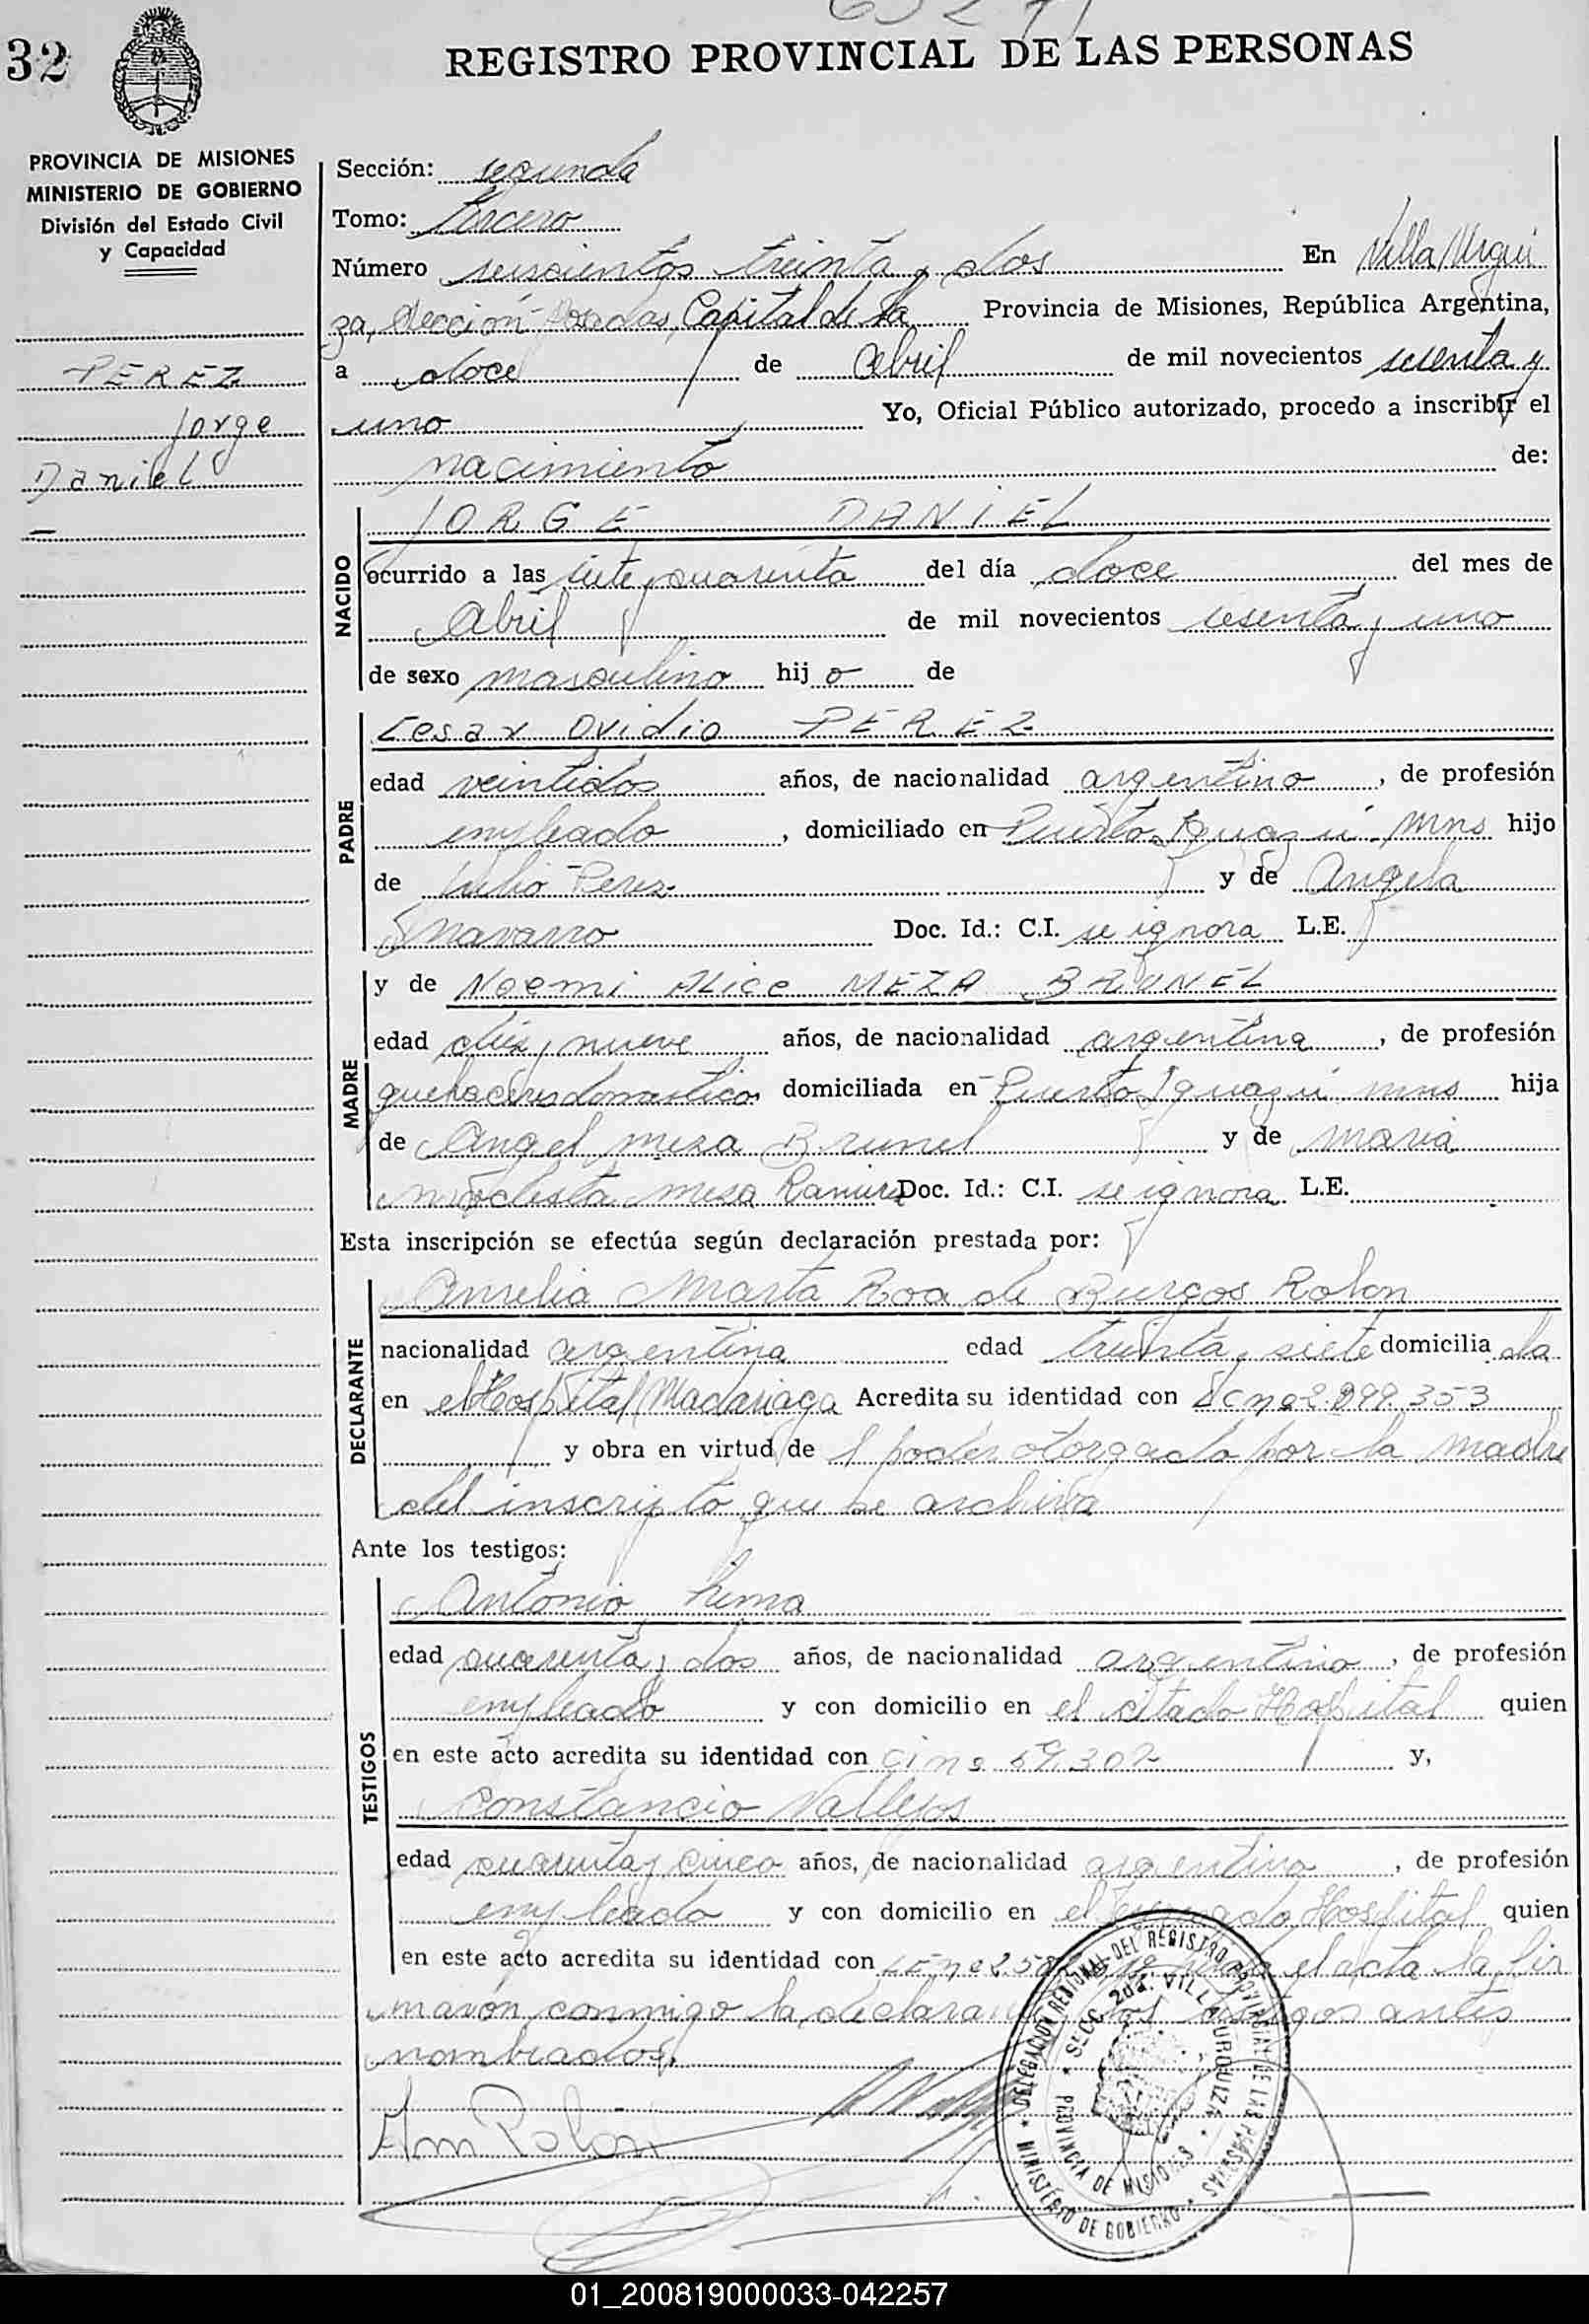 32
REGISTRO PROVINCIAL DE LAS PERSONAS
PROVINCIA DE MISIONES
MINISTERIO DE GOBIERNO
División del Estado Civil
y Capacidad
PEREZ
Jorge
Daniel
Sección: segunda
Tomo: tercero
Número seiscientos treinta y dos En Villa Urqui
za, Sección Posadas, Capital de la Provincia de Misiones, República Argentina,
a doce de Abril de mil novecientos sesenta y
uno Yo, Oficial Público autorizado, procedo a inscribir el
nacimiento de:
NACIDO
JORGE DANIEL
ocurrido a las siete y cuarenta del día doce del mes de
Abril de mil novecientos sesenta y uno
de sexo masculino hij o de
PADRE
Cesar Ovidio PEREZ
edad veintidos años, de nacionalidad argentino, de profesión
empleado, domiciliado en Puerto Iguazú mns hijo
de Julio Perez y de Angela
Navarro Doc. Id.: C.I. se ignora L.E.
MADRE
y de Noemi Alice MEZA BRUNEL
edad diez y nueve años, de nacionalidad argentina, de profesión
quehaceres domesticos domiciliada en Puerto Iguazú mns hija
de Angel meza Brunel y de maria
modesta mesa Ramirez Doc. Id.: C.I. se ignora L.E.
Esta inscripción se efectúa según declaración prestada por:
DECLARANTE
Amelia Marta Roa de Burgos Rolon
nacionalidad argentina edad treinta y siete domicilia da
en el Hospital Madariaga Acredita su identidad con
y obra en virtud de l poder otorgado por la madre
del inscripto que se archiva
Ante los testigos:
TESTIGOS
Antonio Lima
edad cuarenta y dos años, de nacionalidad argentino, de profesión
empleado y con domicilio en el citado Hospital quien
en este acto acredita su identidad con y,
Constancio Vallejos
edad cuarenta y cinco años, de nacionalidad argentino, de profesión
empleado y con domicilio en el Hospital quien
en este acto acredita su identidad con el acta la fir
maron conmigo la testigos antes
nombrados.
DELEGACION REGIONAL DEL REGISTRO PROVINCIAL DE LAS PERSONAS
SECC. 2da. VILLA URQUIZA
PROVINCIA DE MISIONES
MINISTERIO DE GOBIERNO
01_200819000033-042257